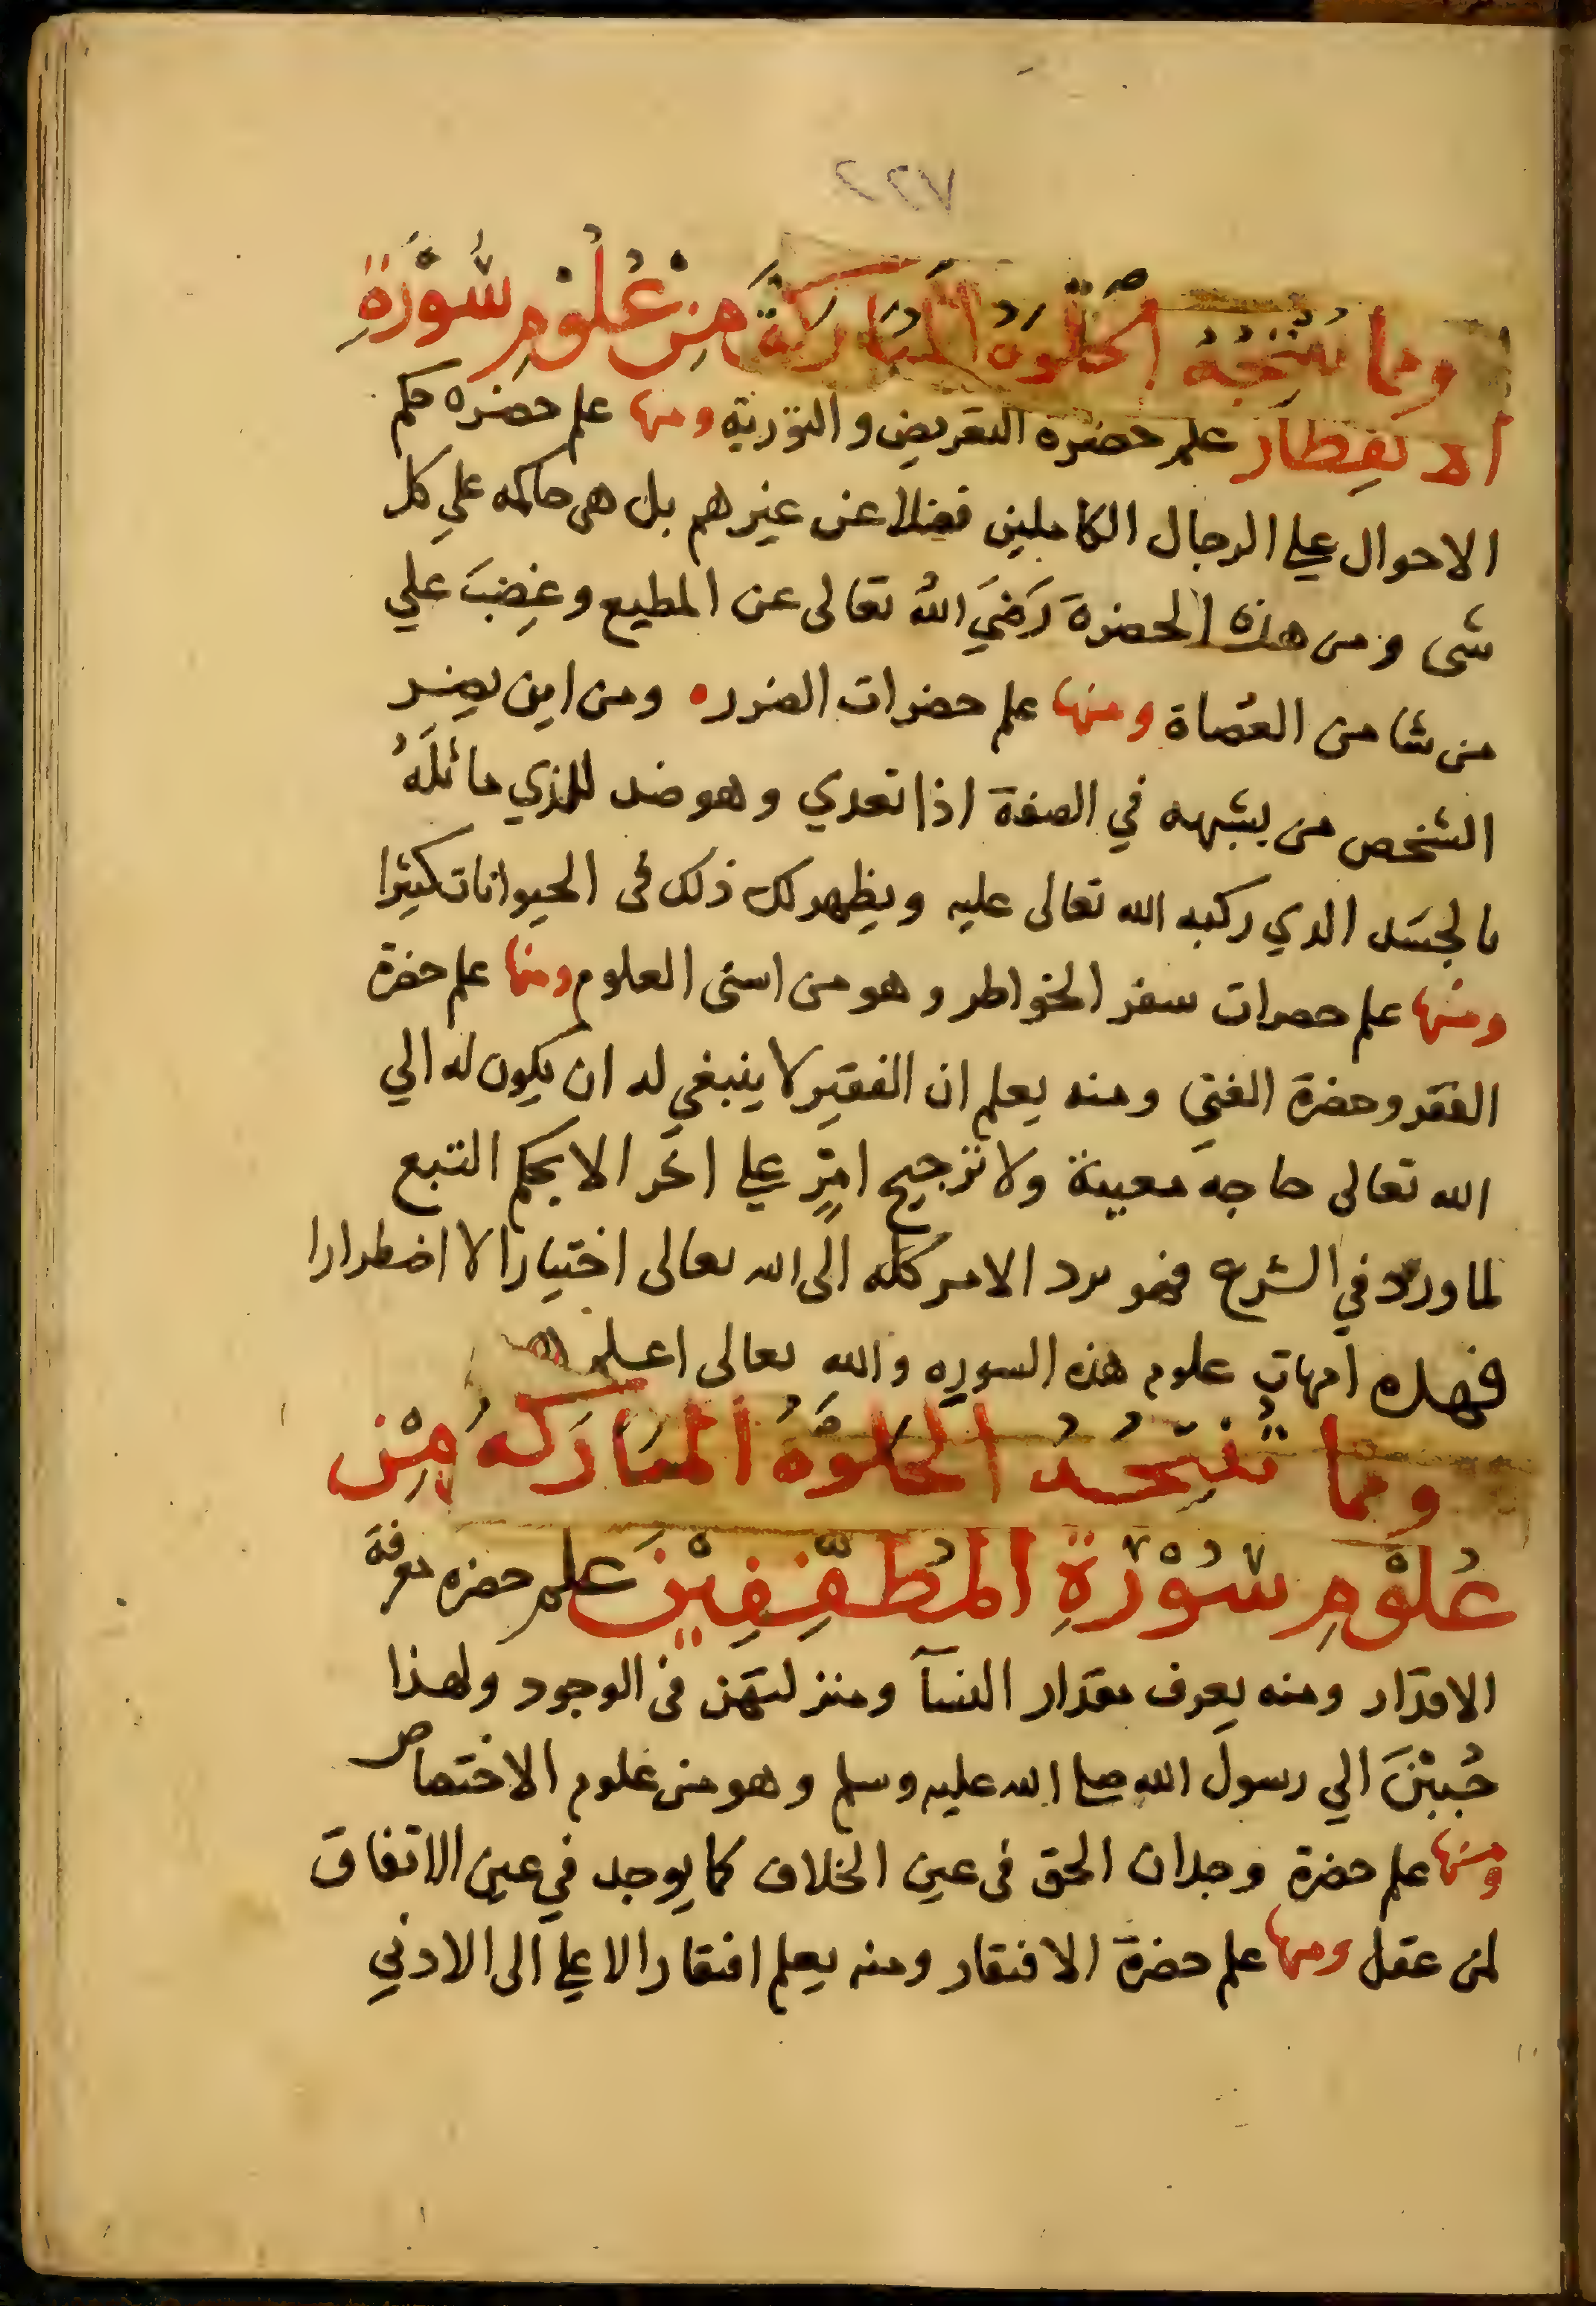 ٢٢٧
ومما تنتجه الخلوة المباركة من علوم سورة
الانفطار علم حضرة التعريض والتورية ومنها علم حضره حكم
الاحوال علي الرجال الكاملين فضلا عن غيرهم بل هى حاكمه علي كل
شى ومن هذه الحضرة رَضيَ اللهُ تعالى عن المطيع وغضِبَ علي
من شا من العُصاة ومنها علم حضرات الضرر ومن اين يضر
الشخص من يشبهه في الصفة اذا تعدي وهو ضد للذي ماثلَهُ
بالجسَد الدي ركبه الله تعالى عليه ويظهر لك ذلك فى الحيوانات كثيرا
ومنها علم حصرات سفر الخواطر وهو من اسنى العلوم ومنها علم حضرة
الفقر وحضرة الغني ومنه يعلم ان الفقير لا ينبغي له ان يكون له الي
الله تعالى حاجه معينة ولا ترجيح امرٍ علي اخر الا بحكم التبع
لما ورد في الشرع فهو يرد الامر كله الى الله تعالى اختيارا لا اضطرارا
فهذه امهات علوم هذه السوره والله تعالى اعلم
ومما تنتجه الخلوة المباركه من
عُلوْمِ سُوْرَةِ المُطفِّفِيْنَ علم حضره معرفة
الاقدار ومنه يعرف مقدار النسآ ومنزلتهن فى الوجود ولهذا
حُببْنَ الي رسول الله صلى الله عليه وسلم وهو من علوم الاختصاص
ومنها علم حضرة وجدان الحق فى عين الخلاف كما يوجد في عين الاتفاق
لمن عقل ومنها علم حضرة الافتقار ومنه يعلم افتقار الاعلي الى الادني